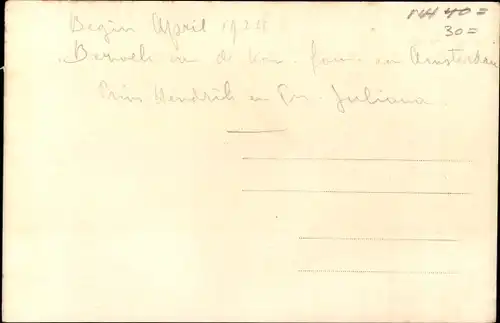 Begin April
40=
30=
Bezoek v d Kon. fam. in Amsterdam
Prins Hendrik en Pr. Juliana